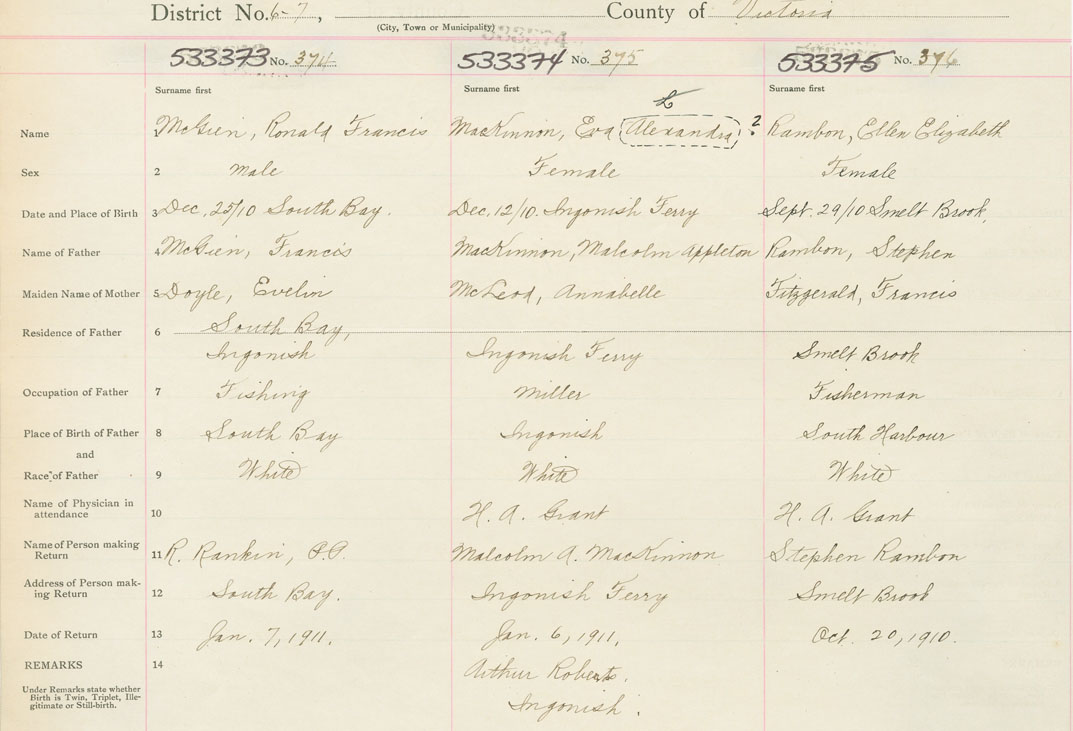 District No. 6-7, County of Victoria
(City, Town or Municipality)
533373 No. 374 533374 No. 375 533375 No. 376
Surname first Surname first Surname first
Name 1 McGien, Ronald Francis MacKinnon, Eva Alexandra ? Rambon, Ellen Elizabeth
Sex 2 Male Female Female
Date and Place of Birth 3 Dec. 25/10 South Bay. Dec. 12/10. Ingonish Ferry Sept. 29/10 Smelt Brook,
Name of Father 4 McGien, Francis MacKinnon, Malcolm Appleton Rambon, Stephen
Maiden Name of Mother 5 Doyle, Evelin McLeod, Annabelle Fitzgerald, Francis
Residence of Father 6 South Bay,
Ingonish Ingonish Ferry Smelt Brook
Occupation of Father 7 Fishing Miller Fisherman
Place of Birth of Father 8 South Bay Ingonish South Harbour
and
Race of Father 9 White White White
Name of Physician in
attendance 10 H. A. Grant H. A. Grant
Name of Person making
Return 11 R. Rankin, P.P. Malcolm A. MacKinnon Stephen Rambon
Address of Person mak-
ing Return 12 South Bay. Ingonish Ferry Smelt Brook
Date of Return 13 Jan. 7, 1911. Jan. 6, 1911. Oct. 20, 1910.
REMARKS 14 Arthur Roberts.
Under Remarks state whether
Birth is Twin, Triplet, Ille-
gitimate or Still-birth. Ingonish.